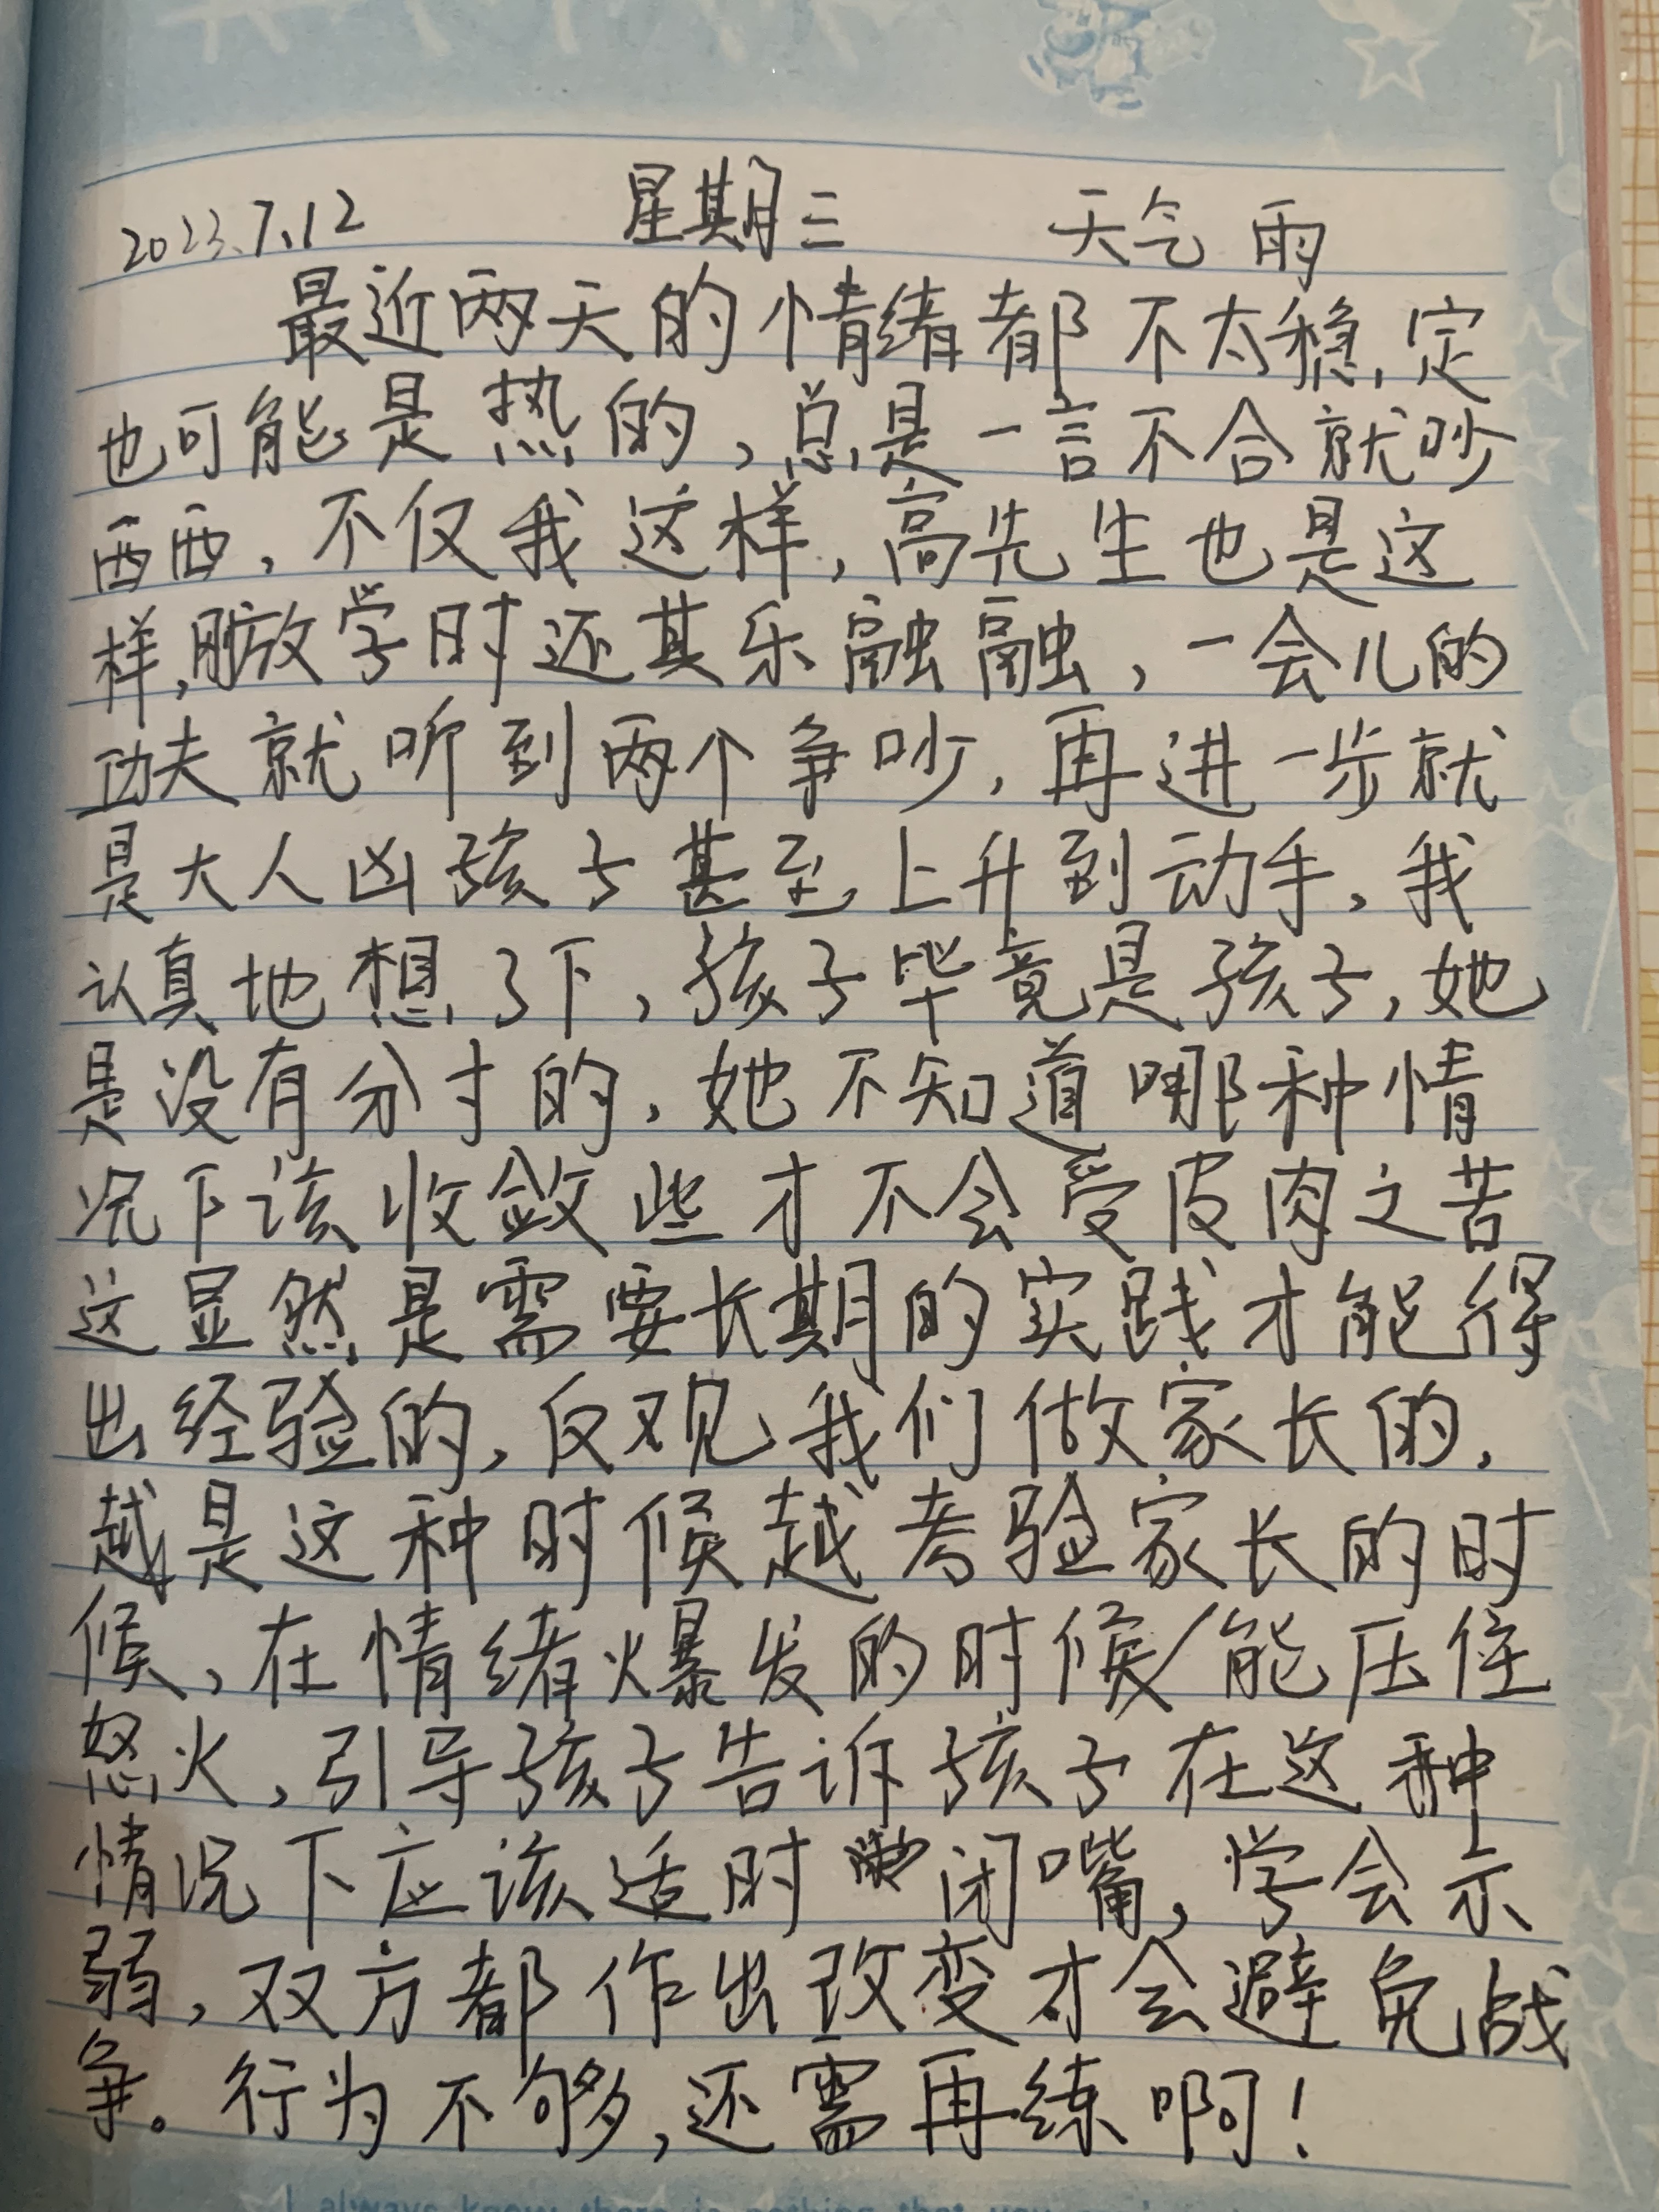 2023.7.12 星期三 天气 雨
最近两天的情绪都不太稳定
也可能是热的，总是一言不合就吵
西西，不仅我这样，高先生也是这
样，刚放学时还其乐融融，一会儿的
功夫就听到两个争吵，再进一步就
是大人凶孩子甚至上升到动手，我
认真地想了下，孩子毕竟是孩子，她
是没有分寸的，她不知道哪种情
况下该收敛些才不会受皮肉之苦
这显然是需要长期的实践才能得
出经验的，反观我们做家长的，
越是这种时候越考验家长的时
候、在情绪爆发的时候能压住
怒火，引导孩子告诉孩子在这种
情况下应该适时闭嘴，学会示
弱，双方都作出改变才会避免战
争。行为不够，还需再练啊！
I always know there is nothing that you